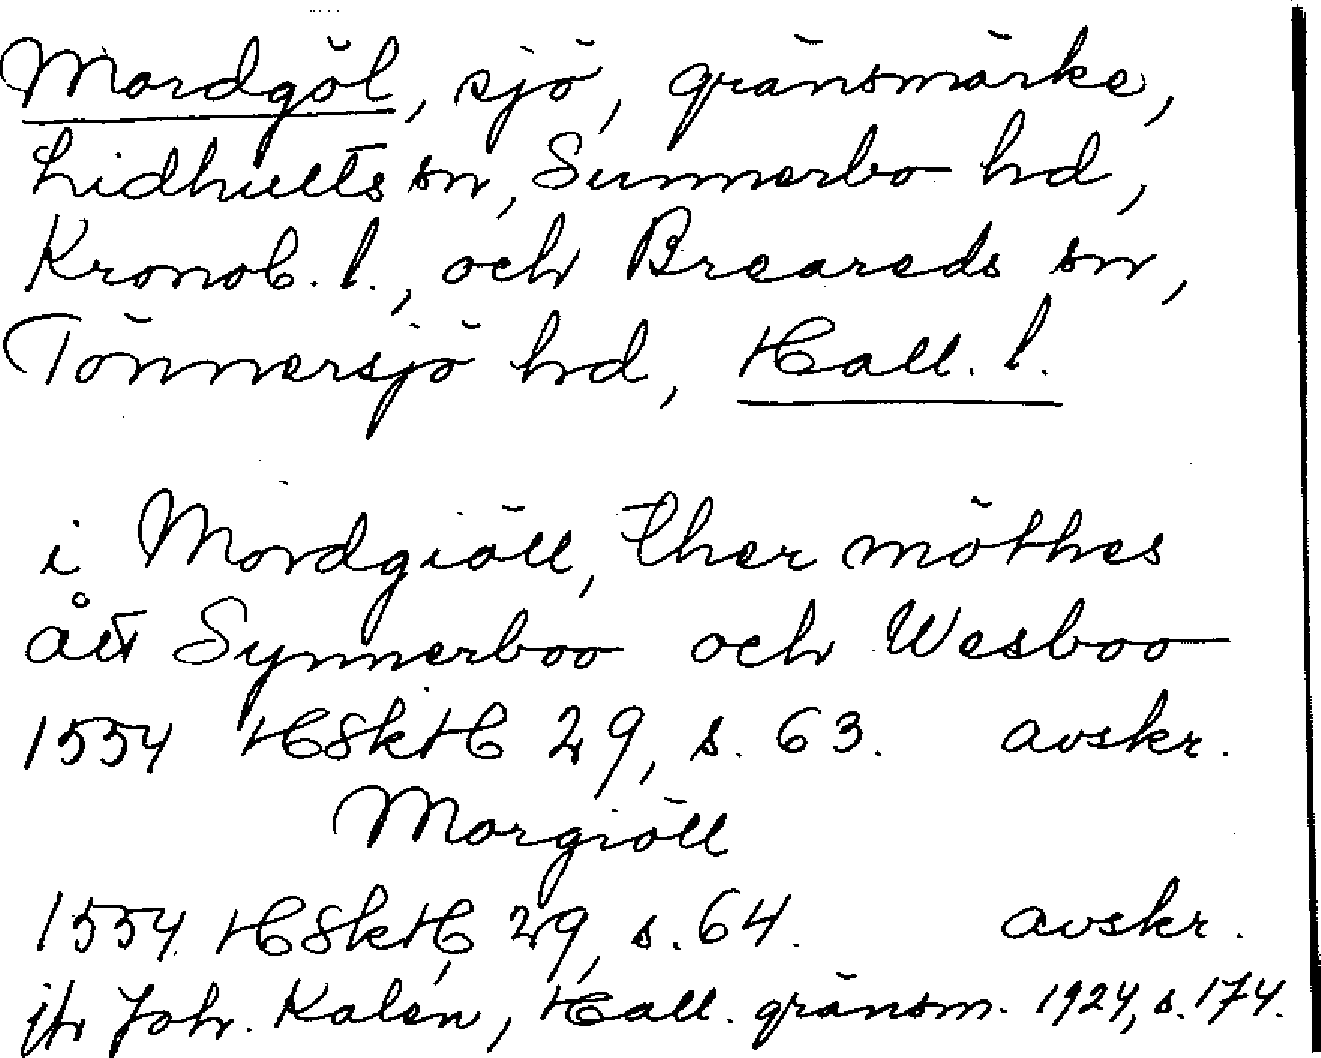 Mordgöl, sjö, gränsmärke,
Lidhults sn, Sunnerbo hd,
Kronob. l., och Breareds sn,
Tönnersjö hd, Hall. l.
i Mordgiöll, ther möthes
ått Synnerboo och Wesboo
1554 HSkH 29, s. 63. avskr.
Morgiöll
1554 HSkH, 29, s. 64. avskr.
jfr Joh. Kalén, Hall. gränsm. 1924, s. 174.